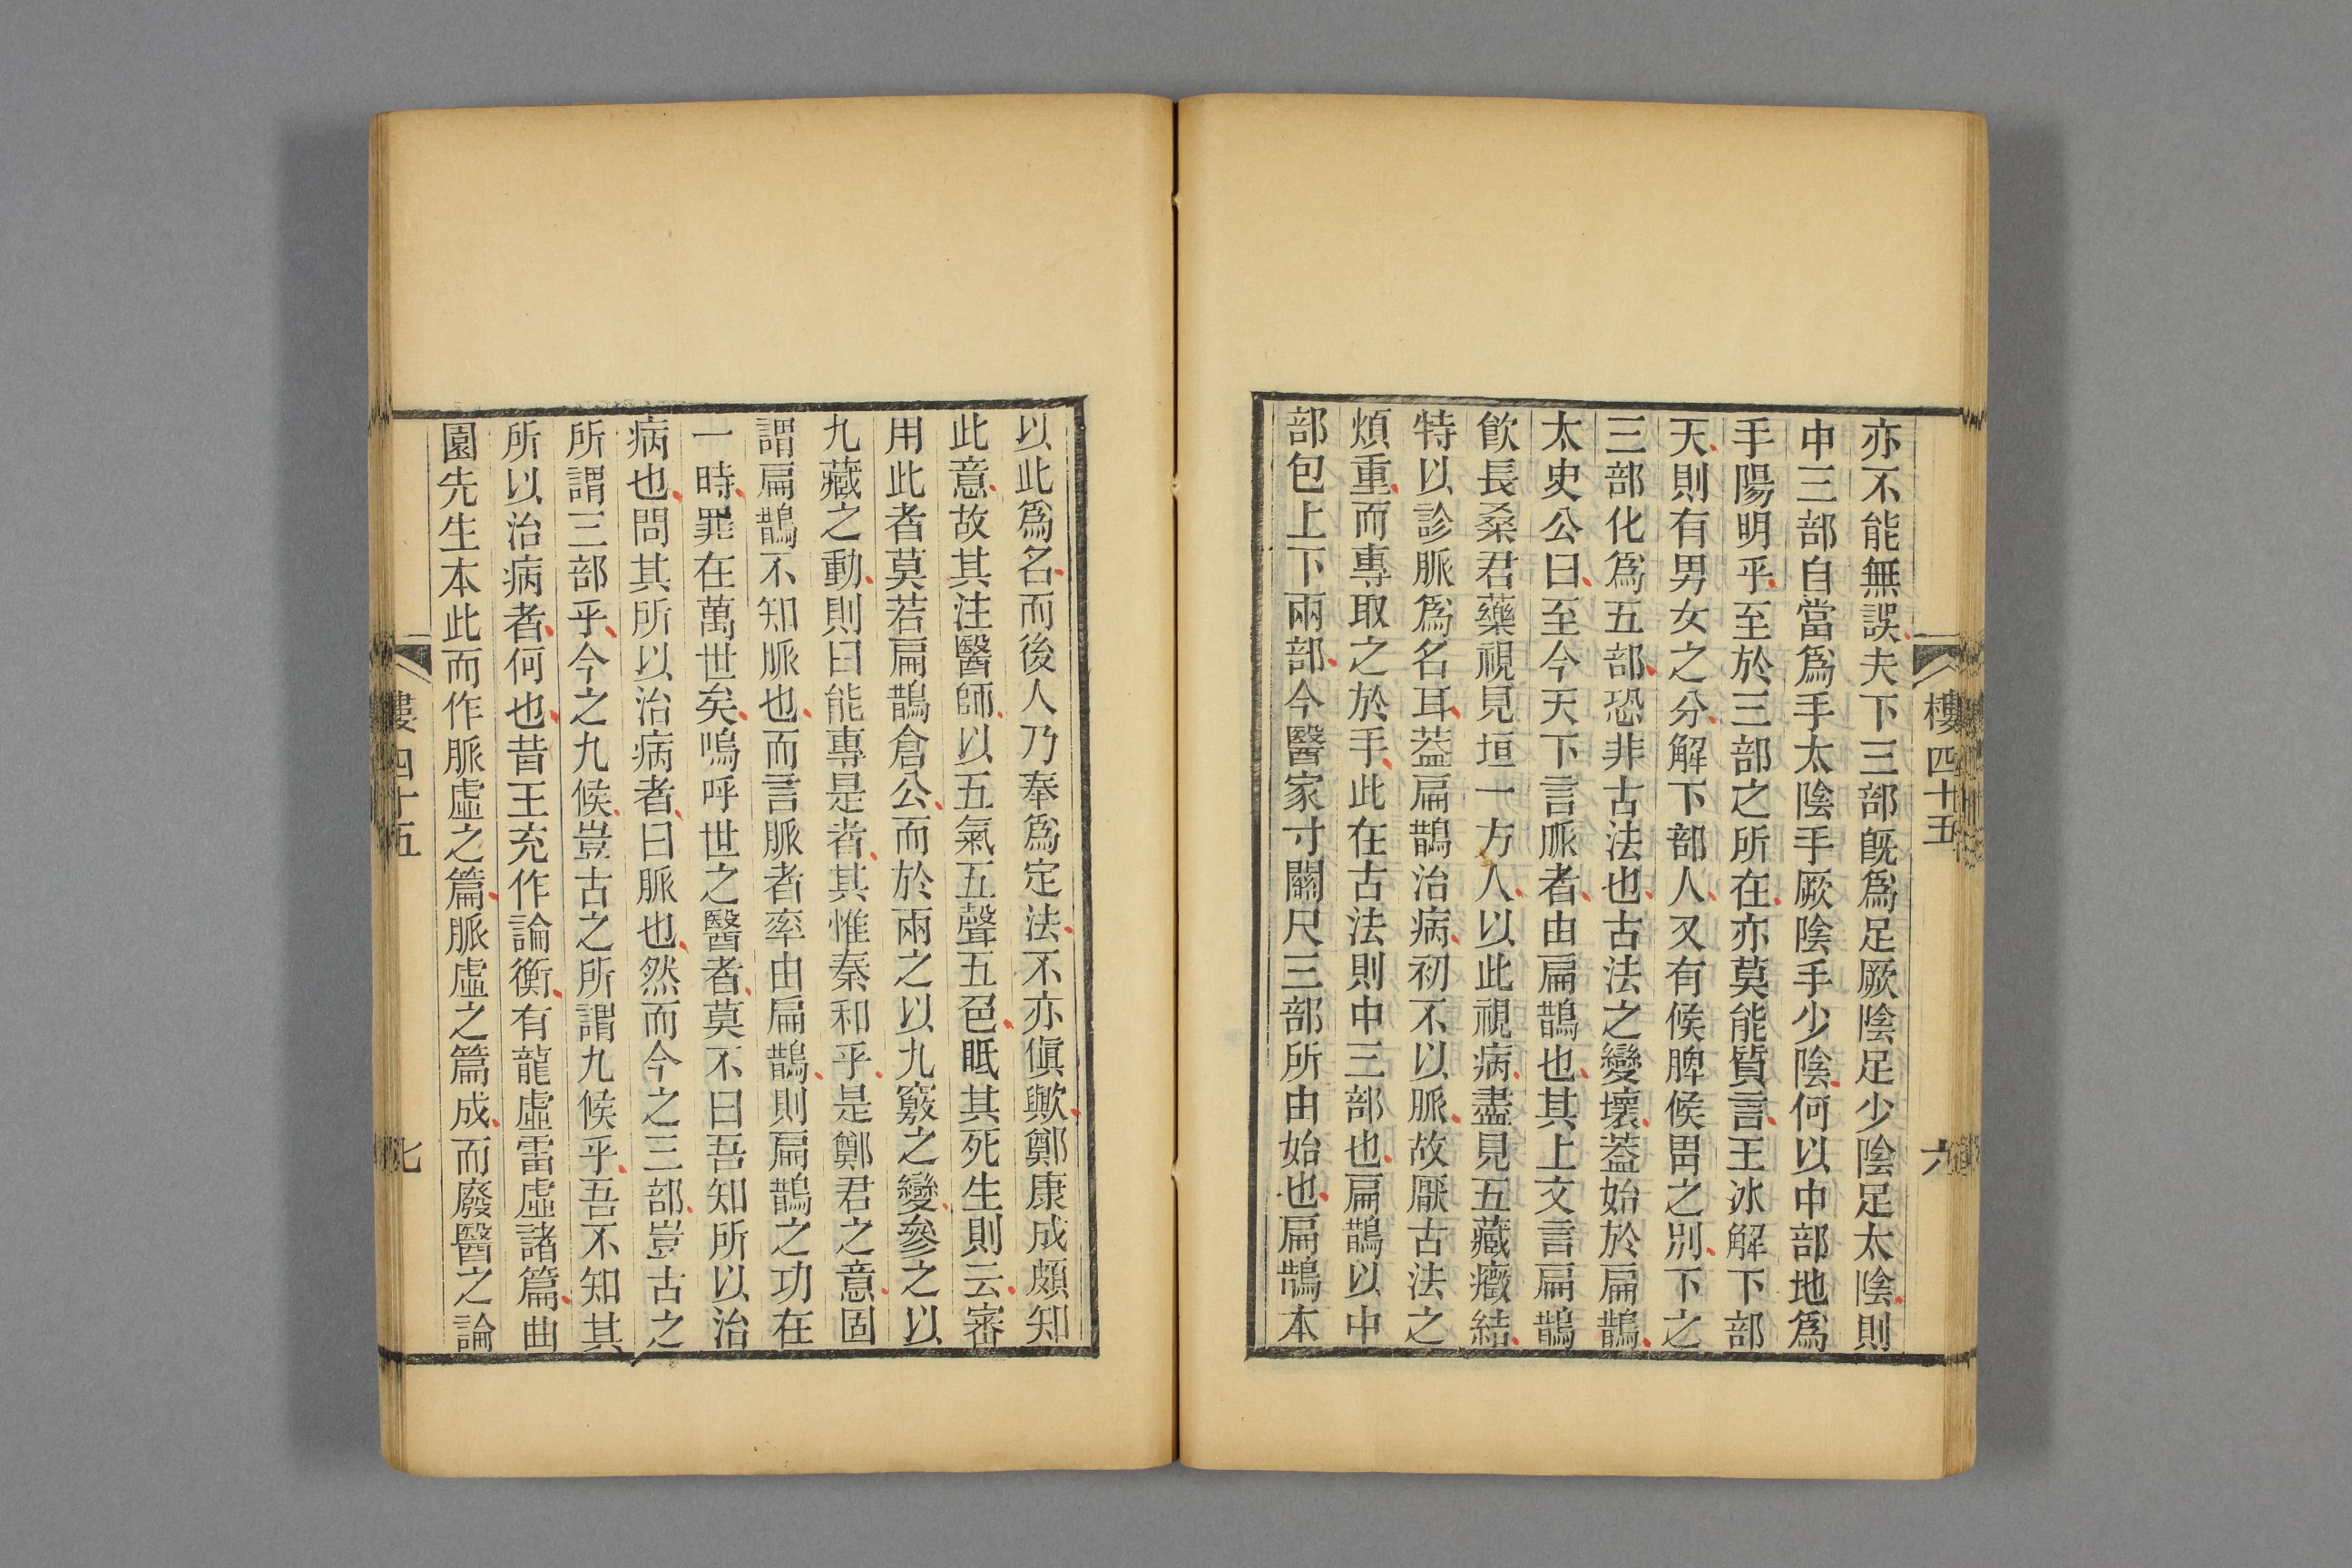 樓四十五
六
亦不能無誤夫下三部旣爲足厥陰足少陰足太陰則
中三部自當爲手太陰手厥陰手少陰何以中部地爲
手陽明乎至於三部之所在亦莫能質言王冰解下部
天則有男女之分解下部人又有候脾候胃之別下之
三部化爲五部恐非古法也古法之變壞葢始於扁鵲
太史公曰至今天下言脈者由扁鵲也其上文言扁鵲
飮長桑君藥視見垣一方人以此視病盡見五藏癥結
特以診脈爲名耳葢扁鵲治病初不以脈故厭古法之
煩重而專取之於手此在古法則中三部也扁鵲以中
部包上下兩部今醫家寸關尺三部所由始也扁鵲本
以此爲名而後人乃奉爲定法不亦傎歟鄭康成頗知
此意故其注醫師以五氣五聲五色眡其死生則云審
用此者莫若扁鵲倉公而於兩之以九竅之變參之以
九藏之動則曰能專是者其惟秦和乎是鄭君之意固
謂扁鵲不知脈也而言脈者率由扁鵲則扁鵲之功在
一時罪在萬世矣嗚呼世之醫者莫不曰吾知所以治
病也問其所以治病者曰脈也然而今之三部豈古之
所謂三部乎今之九候豈古之所謂九候乎吾不知其
所以治病者何也昔王充作論衡有龍虛雷虛諸篇曲
園先生本此而作脈虛之篇脈虛之篇成而廢醫之論
樓四十五
七